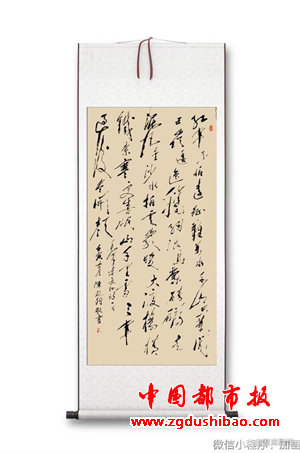 红军不怕远征难万水千山只等闲
五岭逶迤腾细浪乌蒙磅礴走
泥丸金沙水拍云崖暖大渡桥横
铁索寒更喜岷山千里雪三军
过后尽开颜
中国都市报
www.zgdushibao.com
微信小程序：加画